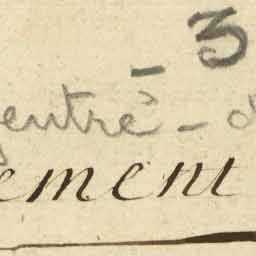 - 3
gentrè - d
ement